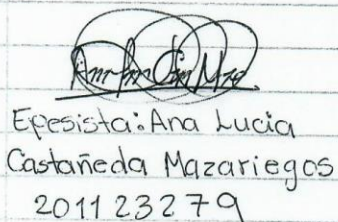 Epesista: Ana Lucia
Castañeda Mazariegos
201123279